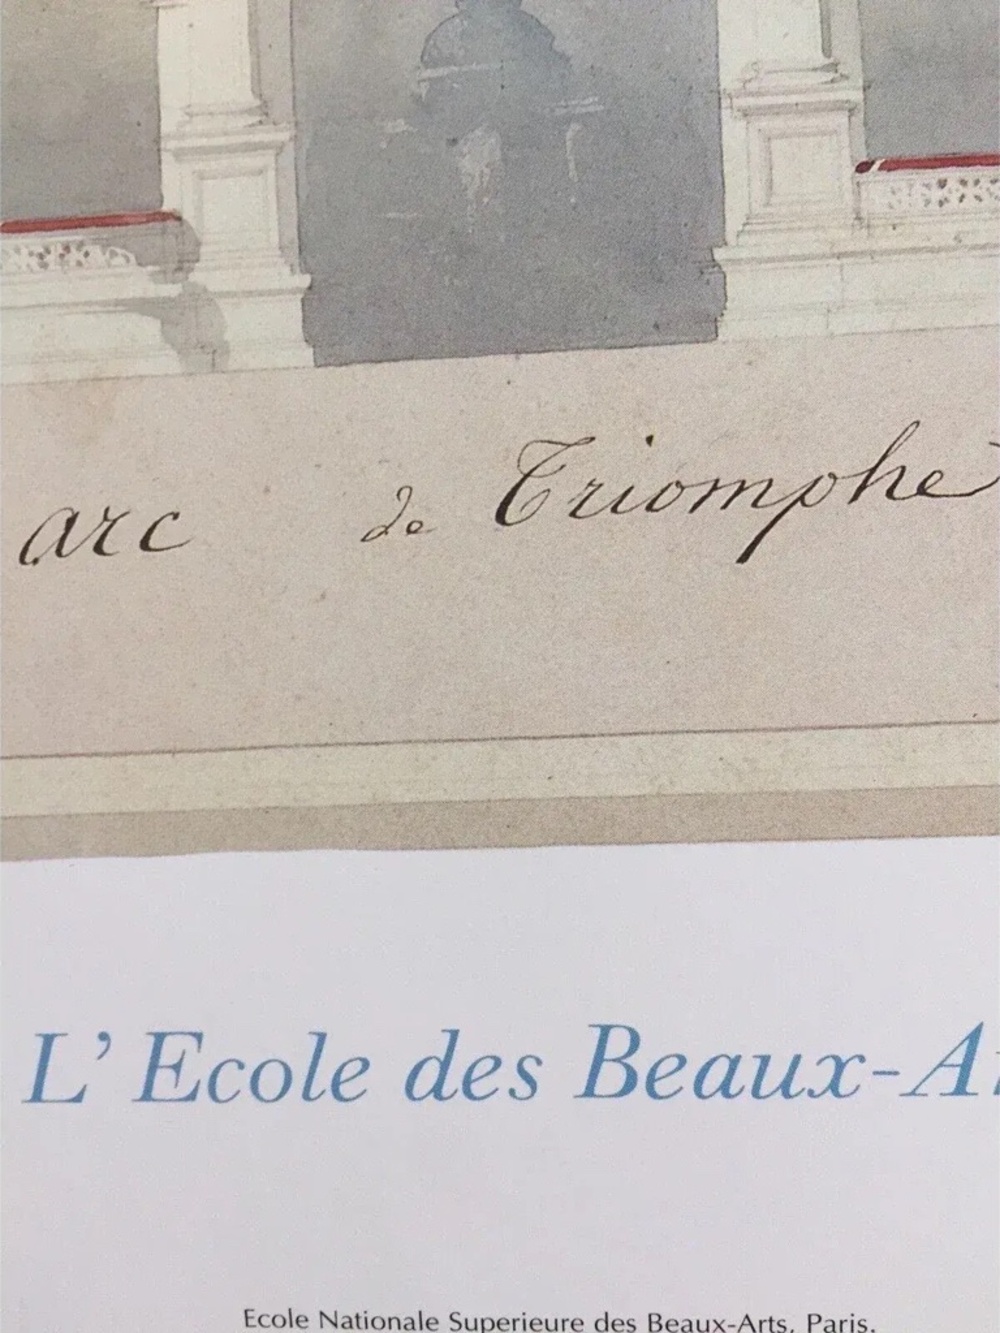 arc de Triomphe
L' Ecole des Beaux-A
Ecole Nationale Superieure des Beaux-Arts, Paris.